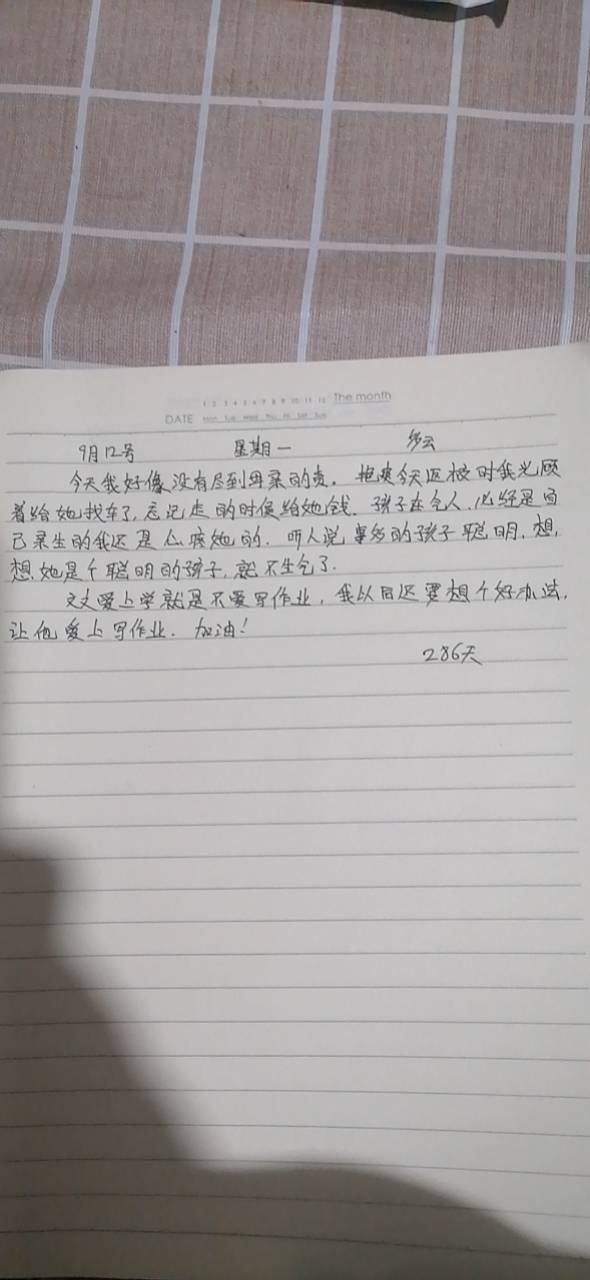 1 2 3 4 5 6 7 8 9 10 11 12 The month
DATE Mon Tue Wed Thu Fri Sat Sun
9月12号 星期一 多云
今天我好像没有尽到母亲的责，今天返校时我光顾
着给她找车了，忘记走的时候给她钱．孩子在气人，必经是自
己亲生的我还是心疼她的．听人说事多的孩子聪明，想，
想她是个聪明的孩子，就不生气了．
文文爱上学就是不爱写作业，我以后还要想个好办法，
让他爱上写作业．加油！
286天